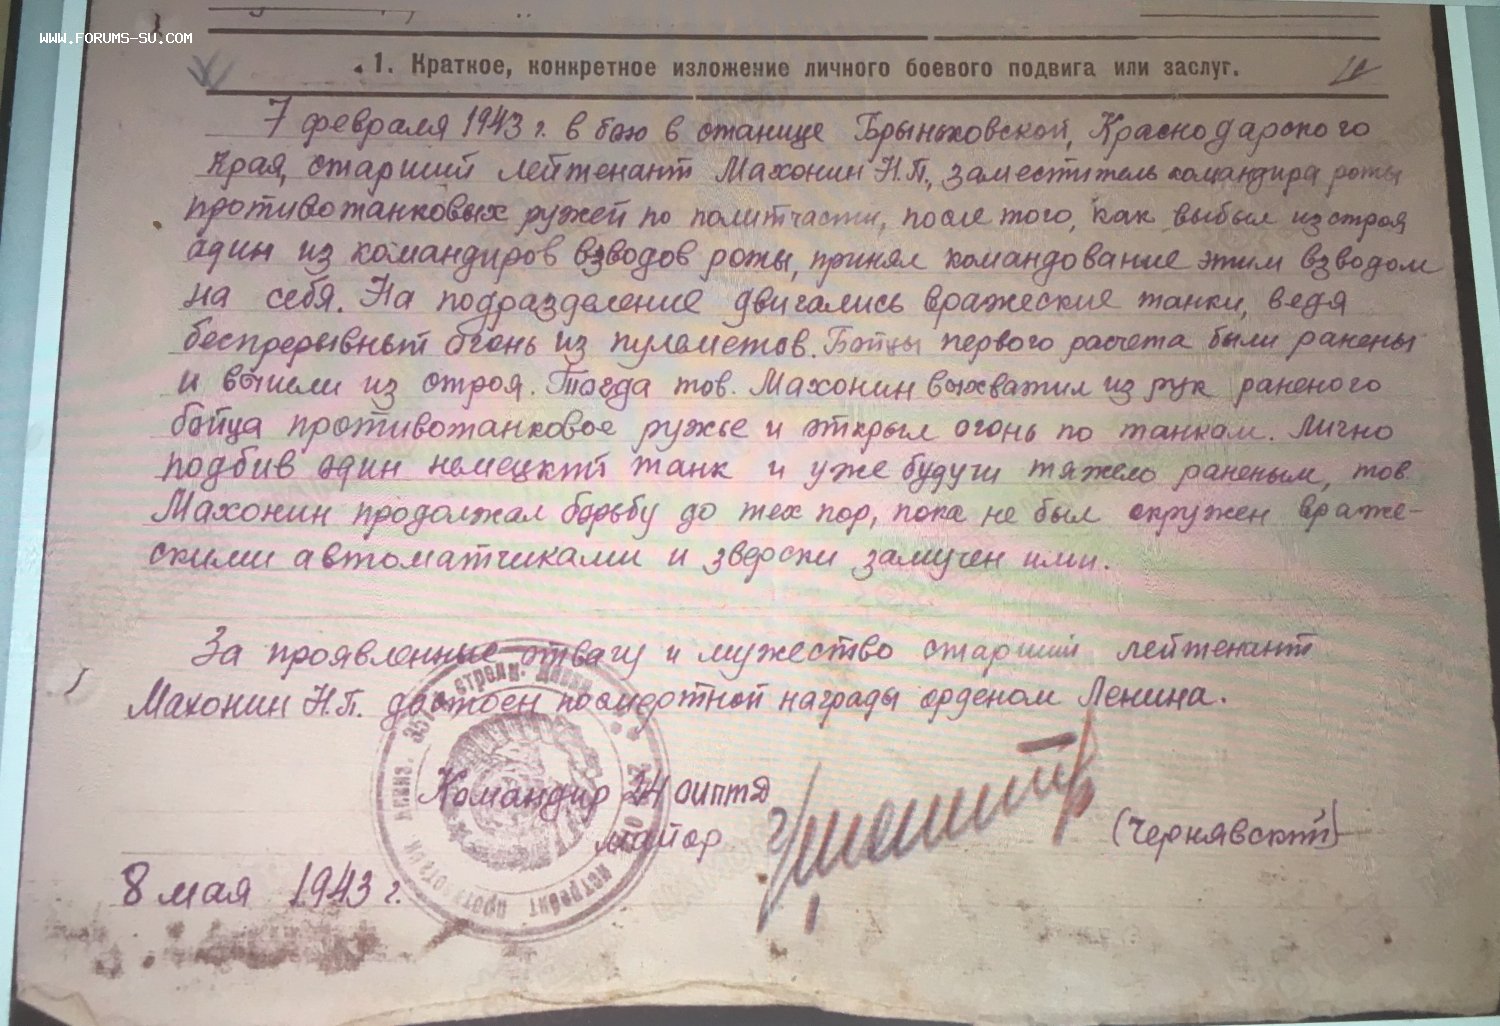 www.forums-su.com
1. Краткое, конкретное изложение личного боевого подвига или заслуг.
7 февраля 1943 г. в бою в станице Брыньковской, Краснодарского
края, старший лейтенант Махонин Н.П., заместитель командира роты
противотанковых ружей по политчасти, после того, как выбыл из строя
один из командиров взводов роты, принял командование этим взводом
на себя. На подразделение двигались вражеские танки, ведя
беспрерывный огонь из пулеметов. Бойцы первого расчета были ранены
и вышли из строя. Тогда тов. Махонин выхватил из рук раненого
бойца противотанковое ружье и открыл огонь по танкам. Лично
подбив один немецкий танк и уже будучи тяжело раненым, тов.
Махонин продолжал борьбу до тех пор, пока не был окружен враже-
скими автоматчиками и зверски замучен ими.
За проявленные отвагу и мужество старший лейтенант
Махонин Н.П. достоен посмертной награды орденом Ленина.
Командир 24 оиптд
майор
(Чернявский)
8 мая 1943 г.